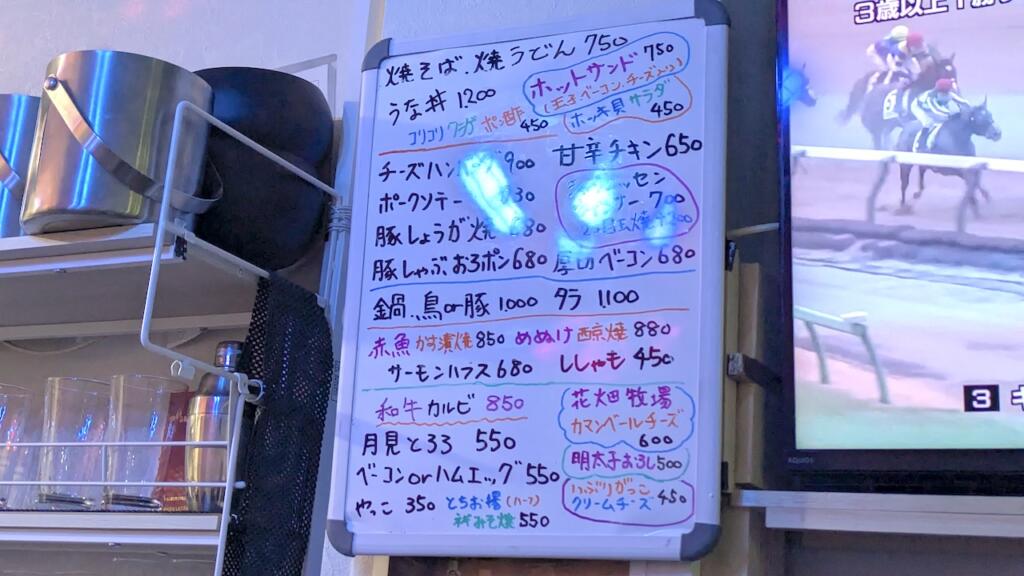 焼そば、焼うどん 750
ホットサンド 750
(玉子ベーコン、チーズ入り)
うな丼 1200
コリコリクラゲポン酢 450
ホッキ貝サラダ 450
チーズハン 900
甘辛チキン 650
ポークソテー
700
豚しょうが焼 680
豚しゃぶおろポン 680 厚切ベーコン 680
鍋、鳥or豚 1000 タラ 1100
赤魚かす漬焼 850 めぬけ西京焼 880
サーモンハラス 680 ししゃも 450
和牛カルビ 850
花畑牧場
カマンベールチーズ
600
月見とろろ 550
明太子おろし 500
ベーコンorハムエッグ 550
いぶりがっこ
クリームチーズ 450
やっこ 350 とちお揚(ハーフ)
ネギみそ焼 550
3歳以上1勝
3 キ
AQUOS